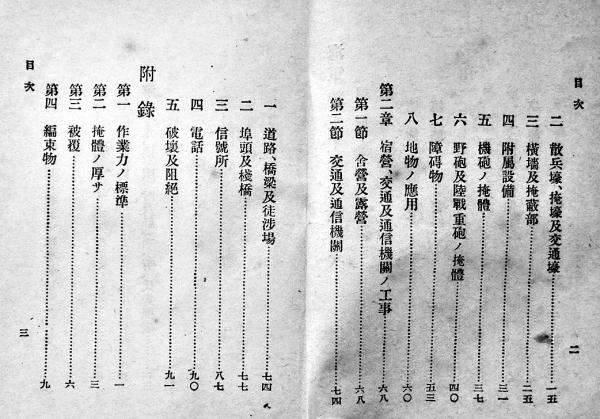 目次
二 散兵壕、掩壕及交通壕……一五
三 橫墻及掩蔽部……二五
四 附屬設備……三一
五 機砲ノ掩體……三七
六 野砲及陸戰重砲ノ掩體……四〇
七 障碍物……五三
八 地物ノ應用……六〇
第二章 宿營、交通及通信機關ノ工事……六八
第一節 舍營及露營……六八
第二節 交通及通信機關……七四
二
一 道路、橋梁及徒涉場……七四
二 埠頭及棧橋……七七
三 信號所……八七
四 電話……九〇
五 破壞及阻絕……九一
附錄
第一 作業力ノ標準……一
第二 掩體ノ厚サ……三
第三 被覆……六
第四 編束物……九
目次
三